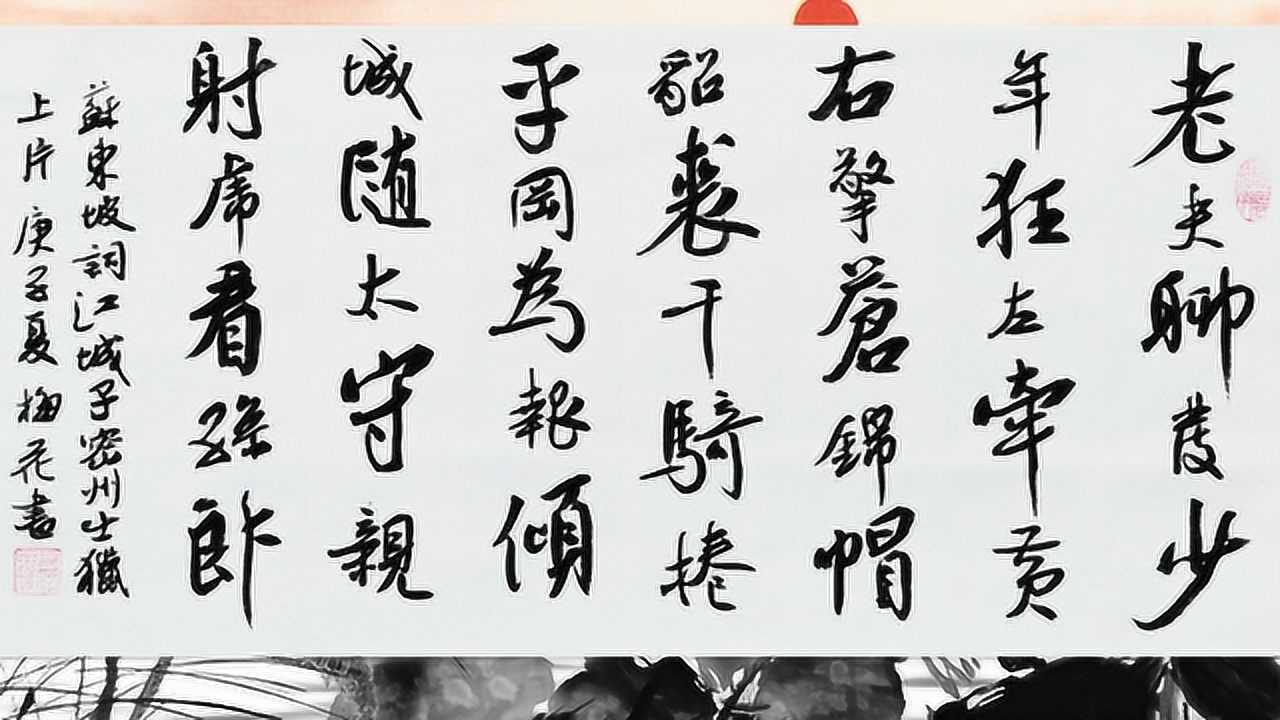 老夫聊發少
年狂左牽黃
右擎蒼錦帽
貂裘千騎捲
平岡為報傾
城随太守親
射虎看孫郎
蘇東坡詞江城子密州出獵
上片 庚子夏 梅花書